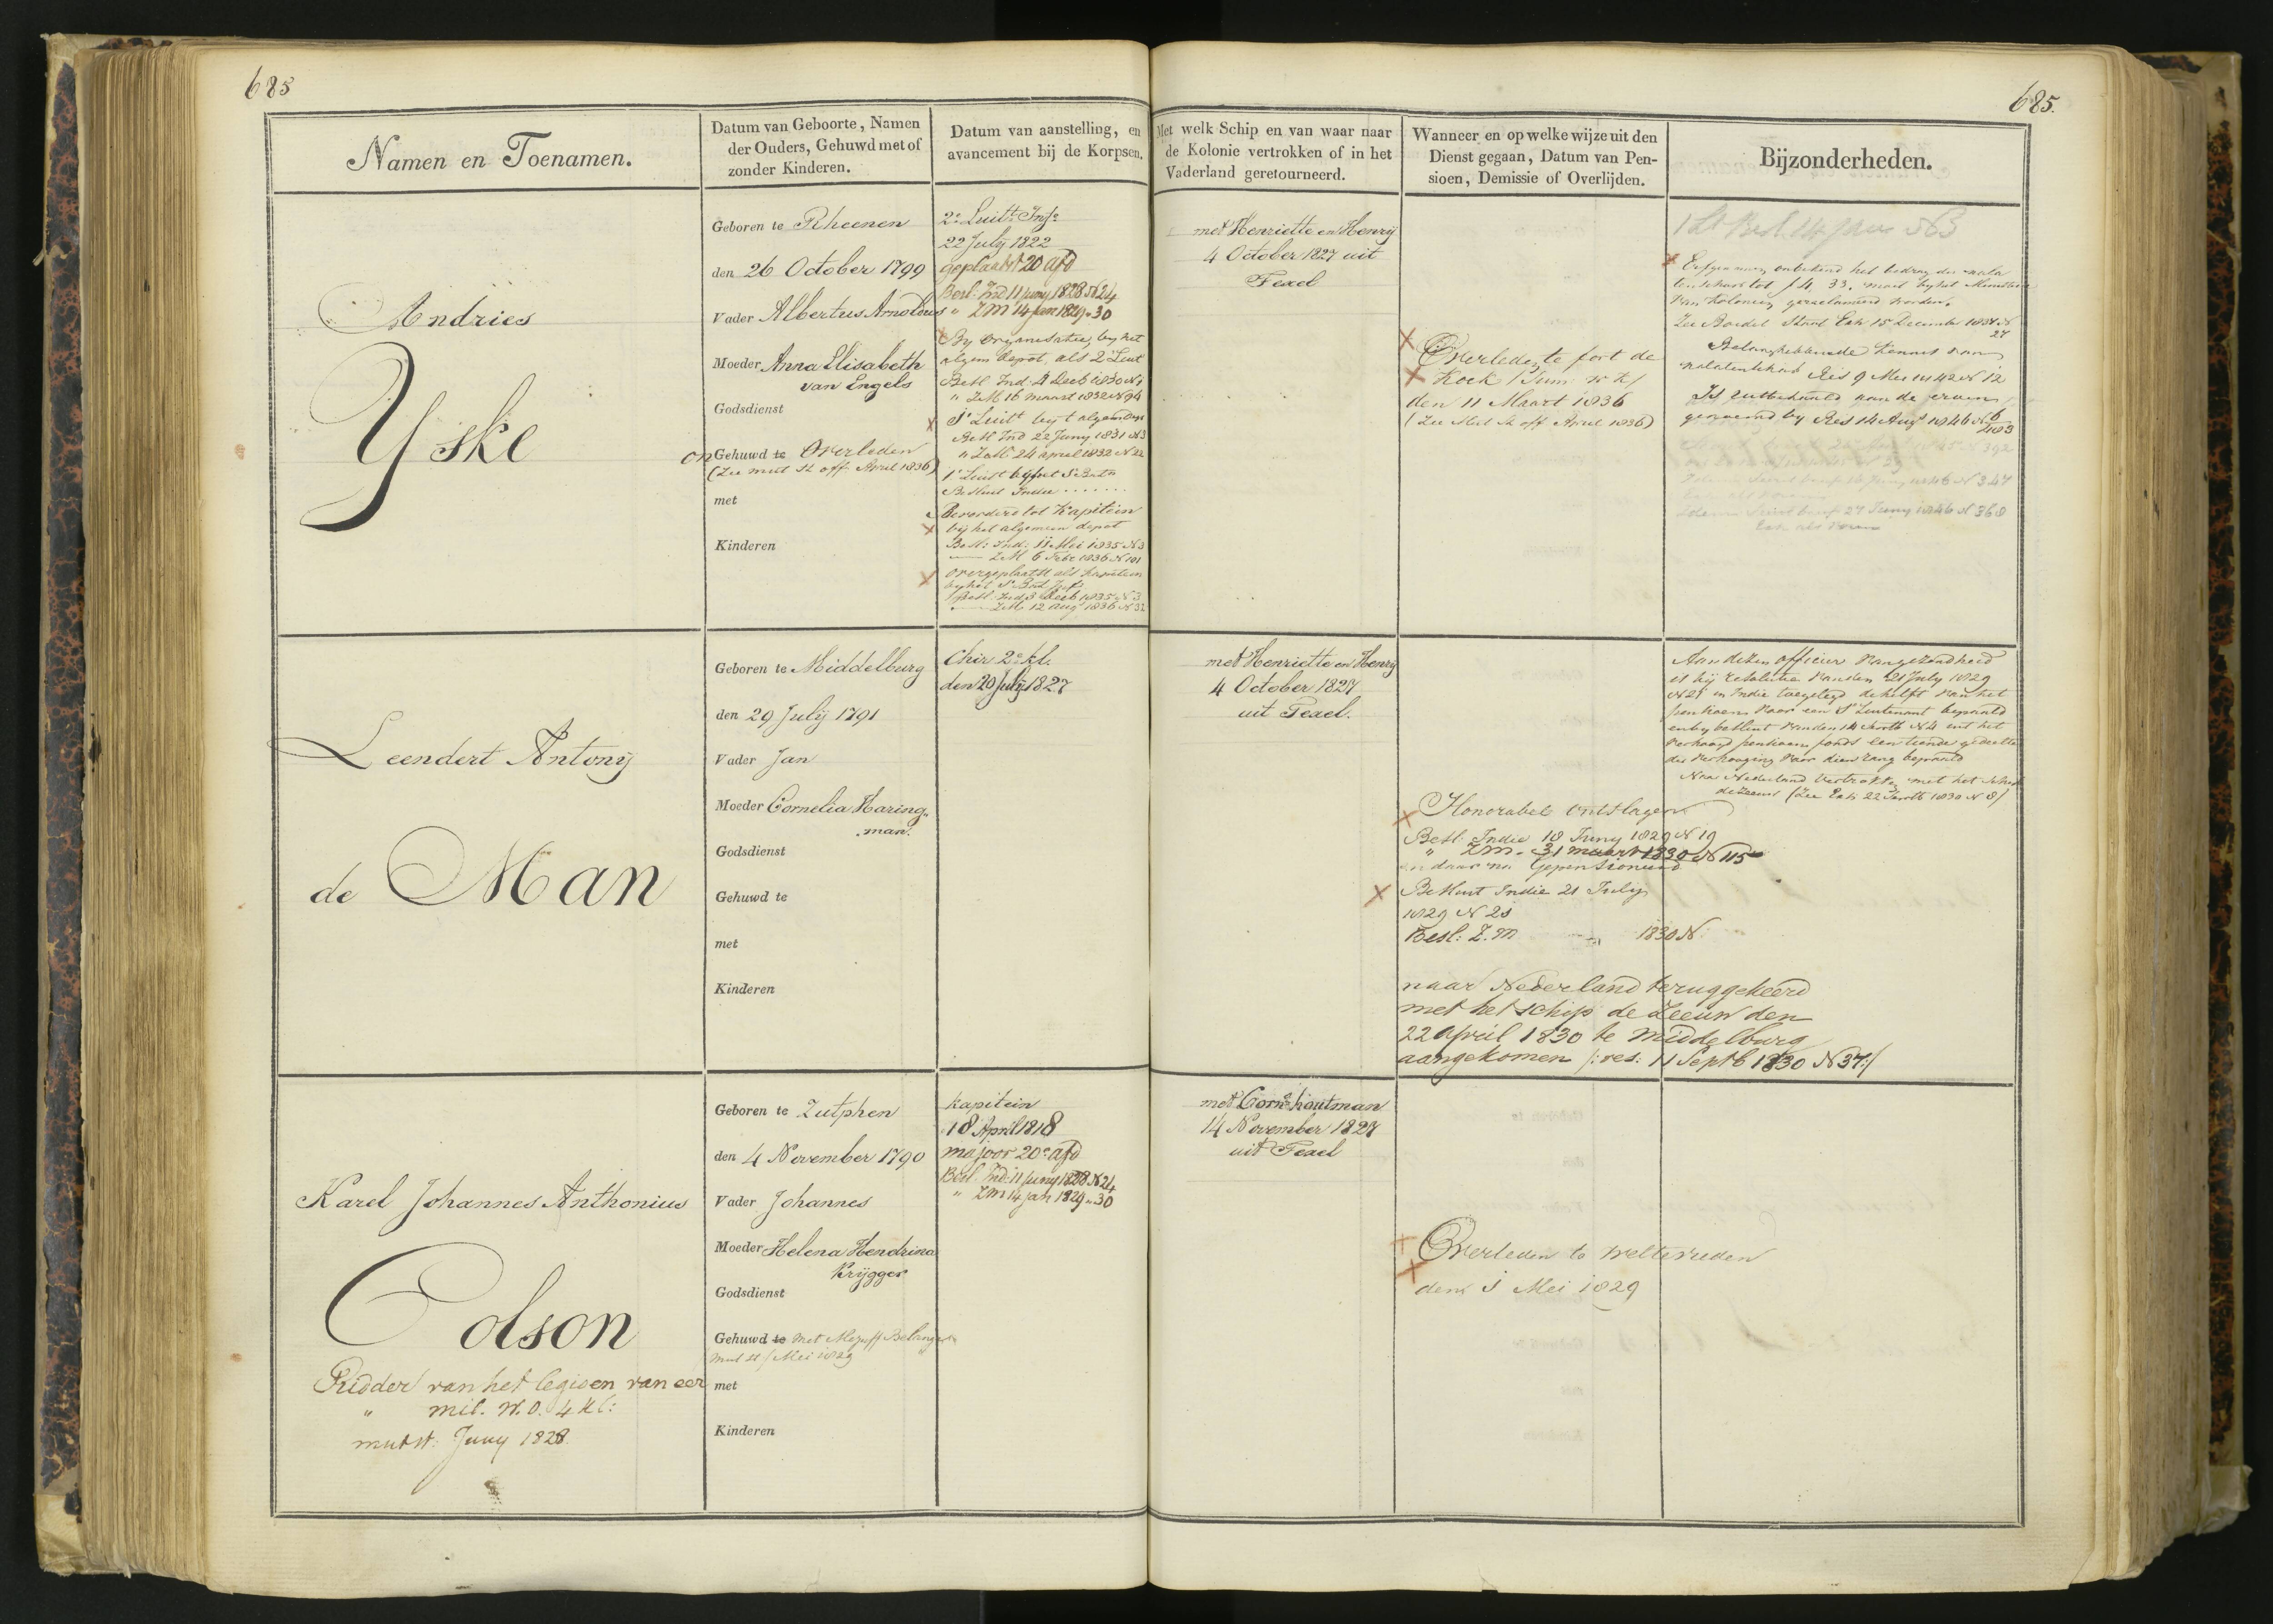 685
685.
Namen en Toenamen.
Datum van Geboorte, Namen
der Ouders, Gehuwd met of
zonder Kinderen.
Datum van aanstelling, en
avancement bij de Korpsen.
Met welk Schip en van waar naar
de Kolonie vertrokken of in het
Vaderland geretourneerd.
Wanneer en op welke wijze uit den
Dienst gegaan, Datum van Pen-
sioen, Demissie of Overlijden.
Bijzonderheden.
Andries
Yske
Geboren te Rheenen
den 26 October 1799
Vader Albertus Arnoldus
Moeder Anna Elisabeth
van Engels
Godsdienst
on Gehuwd te Overleden
(Zee mut st off April 1836)
met
Kinderen
2e Luitt Infe
22 July 1822
geplaatst 20 afd
Besl. Ind 11 Juny 1828 N 24
" ZM 14 Jan 1829 " 30
By organisatie, by het
algem depot, als 2 Luit
Besl Ind. 4 Decb 1830 N 1
" ZM 16 maart 1832 N 94
1e Luitt by t algem depot
Besl Ind 22 Juny 1831 N 3
" ZM 24 april 1832 N 22
1e Luitt by het Bat
Besluit Indie
Bevorderd tot Kapitein
by het algemeen depot
Besl: Ind: 11 Mei 1835 N 3
ZM 6 Febr 1836 N 101
overgeplaatst als Kapitein
by het Bat Inf
Besl. Ind 3 Decb 1835 N 3
ZM 12 Aug 1836 N 32
met Henriette en Henrij
4 October 1827 uit
Texel
Overleden te fort de
Kock / Sum: W. K/
den 11 Maart 1836
(Zee Mut st off April 1836)
1 Lt Besl. 14 Jan N 3
Erfgenamen onbekend het bedrag der nala
tenschap tot f 4. 33. moet by het Ministerie
van Kolonien gereclameerd worden.
Zee Boedel Staat Exh 15 December 1838 N
27
Belanghebbende kennis van
nalatenschap Res 9 Mei 1842 N 12
Is uitbetaald aan de erven
genoemd by Res 14 Augs 1846 N 6/483
Leendert Antonij
de Man
Geboren te Middelburg
den 29 July 1791
Vader Jan
Moeder Cornelia Haring-
man.
Godsdienst
Gehuwd te
met
Kinderen
Chir 2e kl.
den 20 July 1827
met Henriette en Henrij
4 October 1827
uit Texel.
Honorabel ontslagen
Besl. Indie 18 Juny 1829 N 19
" ZM - 31 maart 1830 N 115
en daar na Gepensioneerd
Besluit Indie 21 July
1829 N 21
Besl: Z.M 1830 N.
naar Nederland teruggekeerd
met het schip de Zeeuw den
22 april 1830 te Middelburg
aangekomen /: res: 11 Septb 1830 N 37:/
Aan dezen officier van gezondheid
is bij resolutie van den 21 July 1829
N 21 in Indie toegelegd de helft van het
pensioen voor een 1e Luitenant bepaald
en by besluit van den 14 N 4 uit het
verhoogd pensioen fonds een tiende gedeelte
der verhooging voor dien rang bepaald
Naar Nederland vertrokken met het schip
de Zeeuw (Zee Exh 22 1830 N 8)
Karel Johannes Anthonius
Colson
Ridder van het legioen van eer
" mil. W. O. 4 kl:
mutst: Juny 1828.
Geboren te Zutphen
den 4 November 1790
Vader Johannes
Moeder Helena Hendrina
Krijgger
Godsdienst
Gehuwd te met Mejuff Belanger
mut st / Mei 1829
met
Kinderen
kapitein
18 April 1818
majoor 20e afd
Besl. Ind: 11 Juny 1828 N 24
" ZM 14 jan 1829 " 30
met Corns houtman
14 November 1827
uit Texel
Overleden te weltevreden
den 1 Mei 1829